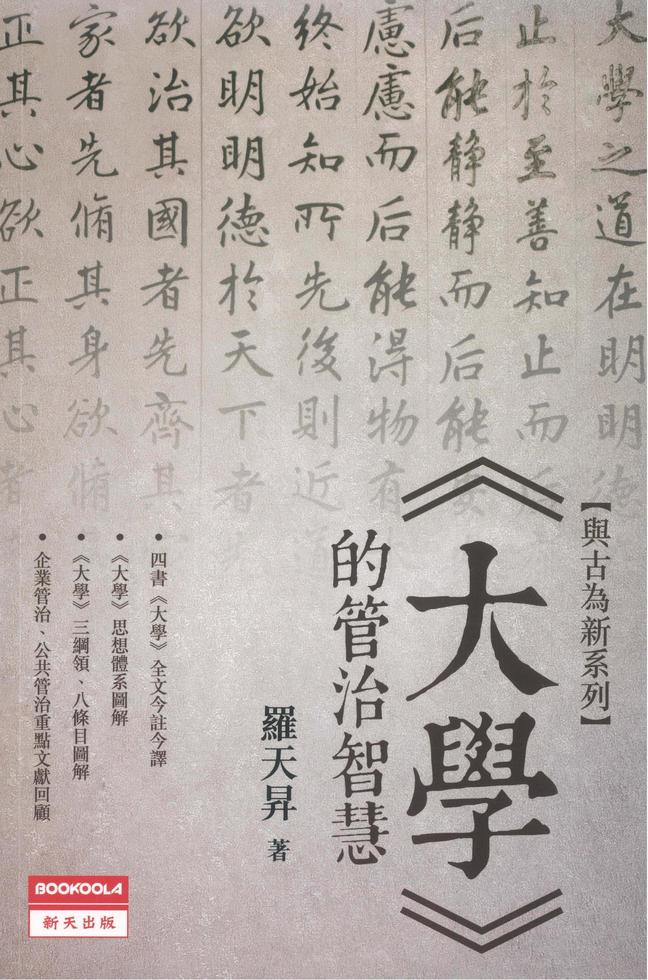 大學之道在明明德
止於至善知止而后
后能静静而后能安
慮慮而后能得物有
終始知所先後則近道
欲明明德於天下者
欲治其國者先齊其
家者先脩其身欲脩
正其心欲正其心者
【與古為新系列】
《大學》
的管治智慧
羅天昇 著
• 四書《大學》全文今註今譯
• 《大學》思想體系圖解
• 《大學》三綱領、八條目圖解
• 企業管治、公共管治重點文獻回顧
BOOKOOLA
新天出版